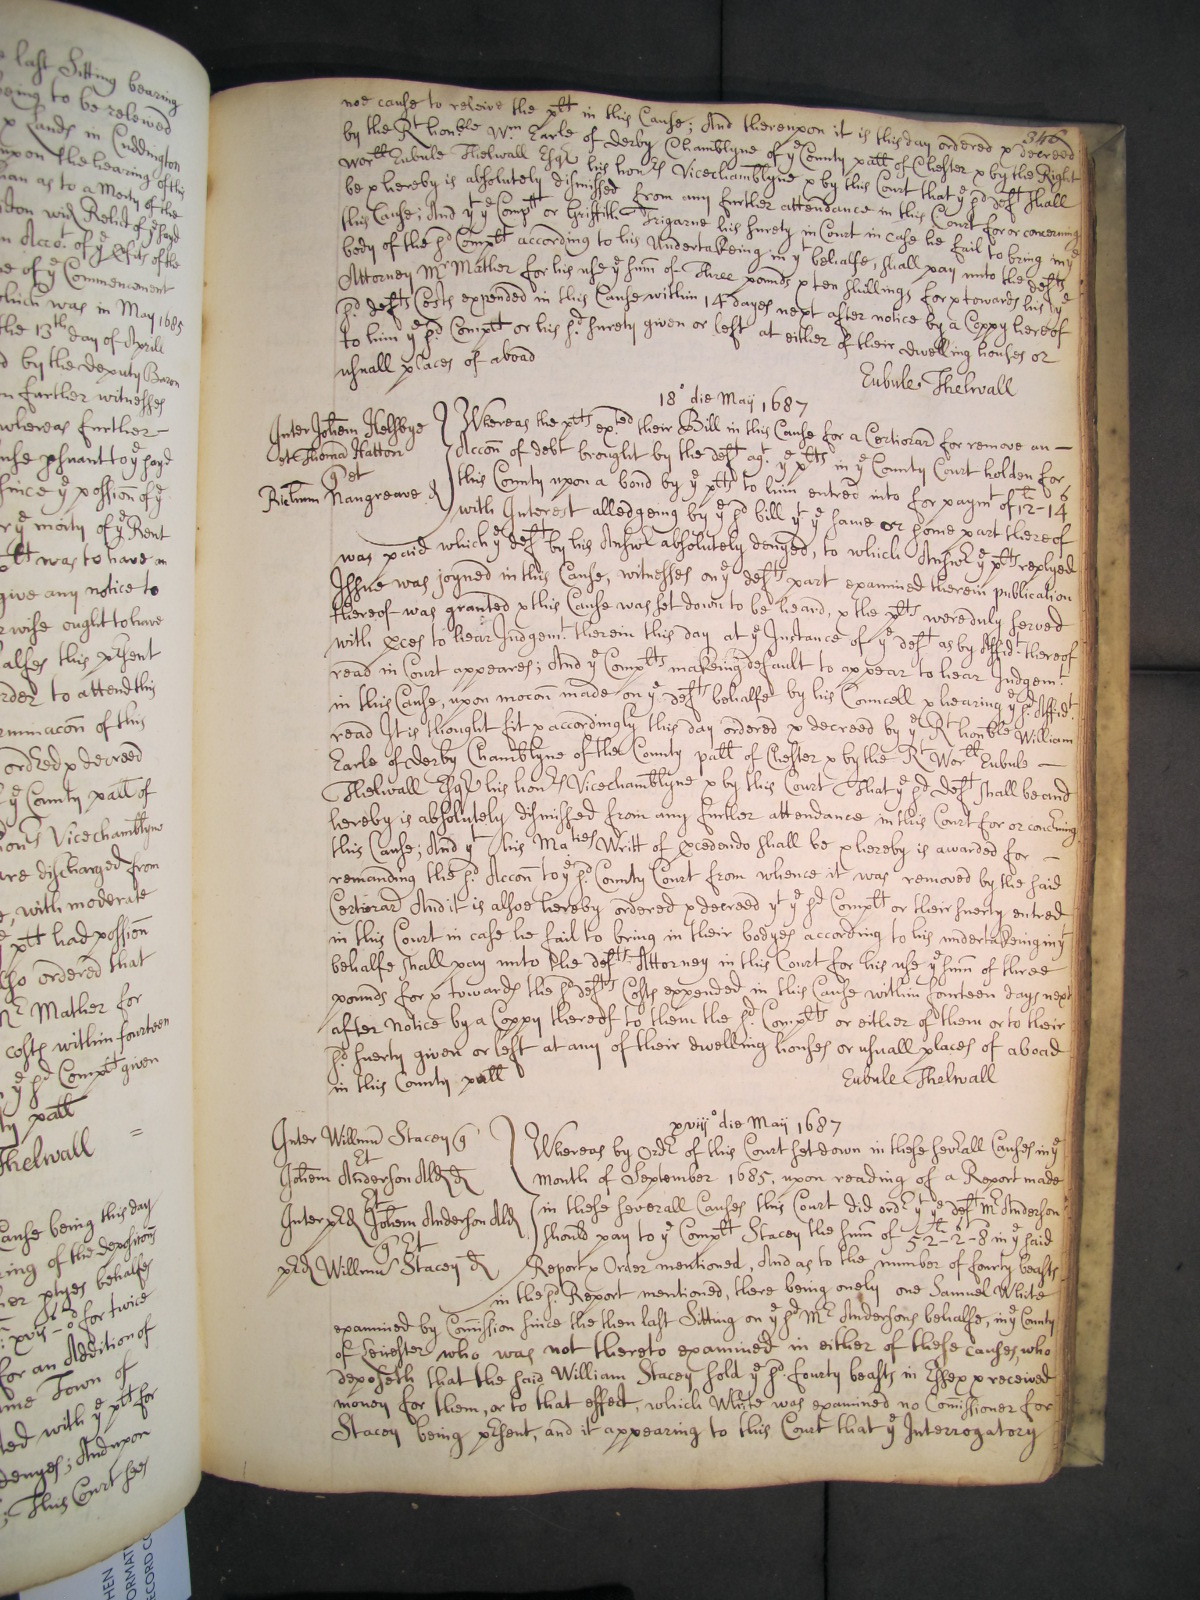 e last Sitting bearing
being to be releived
x Lands in Cuddington
upon the hearing of this
as to a Moety of the
Relict of ye said
Accot. of ye
of ye Commencement
which was in May 1685
the 13th day of Aprill
by the deputy Baron
further witnesses
whereas further
psuant to ye sayd
since ye possion of ye
ye moity of ye Rent
was to have an
give any notice to
wise ought to have
this prsent
order to attend this
of this
ordred x decreed
ye County patt of
Vicechamblyne
are discharged from
with moderate
ye ptt had possion
ordered that
Mr Mather for
costs within fourteen
ye sd Complt given
patt
Thelwall
Cause being this day
ring of the deposicons
ptyes behalfe
for twice
for an Addicon of
Town of
ted with ye ptt for
denyes; And upon
This Court sees
346
noe cause to releive the ptt in this Cause; And thereupon it is this day ordered x decreed
by the Rt honble Wm Earle of Derby Chamblyne of ye County patt of Chester x by the Right
Worll Eubule Thelwall Esqr his honrs Vicechamblyne x by this Court that ye sd deft shall
be x hereby is absolutely dismissed from any further attendance in this Court for or concerning
this Cause; And yt ye Complt or Griffith Trigarne his surety in Court in case he fail to bring in ye
body of the sd Complt according to his Undertakeing in yt behalfe, shall pay unto the defts
Attorney Mr Mather for his use ye summ of Three pounds x ten shillings for x towards his ye
sd defts Costs expended in this Cause within 14 dayes next after notice by a Coppy hereof
to him ye sd Complt or his sd surety given or left at either of their dwelling houses or
usuall places of aboad
Eubule Thelwall
18° die Maij 1687
Inter Johem Helsbye
et Thoma Hatton
q et
Ricum Nangreave d
Whereas the ptts exted their Bill in this Cause for a Certiorari for remove an
Accon of debt brought by the deft agt ye ptts in ye County Court holden for
this County upon a bond by ye ptts to him entred into for paymt of 12-14
with Interest alledgeing by ye sd bill yt ye same or some part thereof
was paid which ye deft by his Answr absolutely denyed, to which Answr ye ptts replyed
Issue was joyned in this Cause, witnesses on ye defts part examined therein publication
thereof was granted x this Cause was set down to be heard, x the ptts were duly served
with xces to hear Judgemt therein this day at ye Instance of ye deft as by Affidt thereof
read in Court appeares; And ye Complts makeing default to appear to hear Judgemt
in this Cause, upon mocon made on ye defts behalfe by his Councell x hearing ye sd Affidt
read It is thought fit x accordingly this day ordered x decreed by ye Rt honble William
Earle of derby Chamblyne of the County patt of Chester x by the Rt Worll Eubule
Thelwall Esqr his honrs Vicechamblyne x by this Court That ye sd deft shall be and
hereby is absolutely dismissed from any further attendance in this Court for or concerning
this Cause; And yt his Maties Writt of xcedendo shall be x hereby is awarded for
remanding the sd Accon to ye sd County Court from whence it was removed by the said
Certiorari And it is alsoe hereby ordered x decreed yt ye sd Complts or their suerty entred
in this Court in case he fail to bring in their bodyes according to his undertakeing in yt
behalfe shall pay unto the defts Attorney in this Court for his use ye summ of three
pounds for x towards the sd defts Costs expended in this Cause within fourteen days next
after Notice by a Coppy thereof to them the sd Complts or either of them or to their
sd suerty given or left at any of their dwelling houses or usuall places of aboad
in this County patt
Eubule Thelwall
xviij° die Maij 1687
Inter Willmu Stacey q
Et
Johem Anderson Ald d
Et
Inter prd Johem Anderson Ald
q Et
prd Willmu Stacey d
Whereas by Ordr of this Court set down in these sevrall Causes in ye
month of September 1685, upon reading of a Report made
in these severall Causes this Court did ordr yt ye deft Mr Anderson
should pay to ye Complt Stacey the summ of 52-2-8 in ye said
Report x Order mentioned, And as to the number of fourty beasts
in the sd Report mentioned, there being onely one Samuel White
examined by Comission since the then last Sitting on ye sd Mr Andersons behalfe, in ye County
of Leicester who was not thereto examined in either of these causes, who
deposeth that the said William Stacey sold ye sd fourty beasts in Essex x received
money for them, or to that effect, which White was examined no Comissioner for
Stacey being prsent, and it appearing to this Court that ye Interrogatory